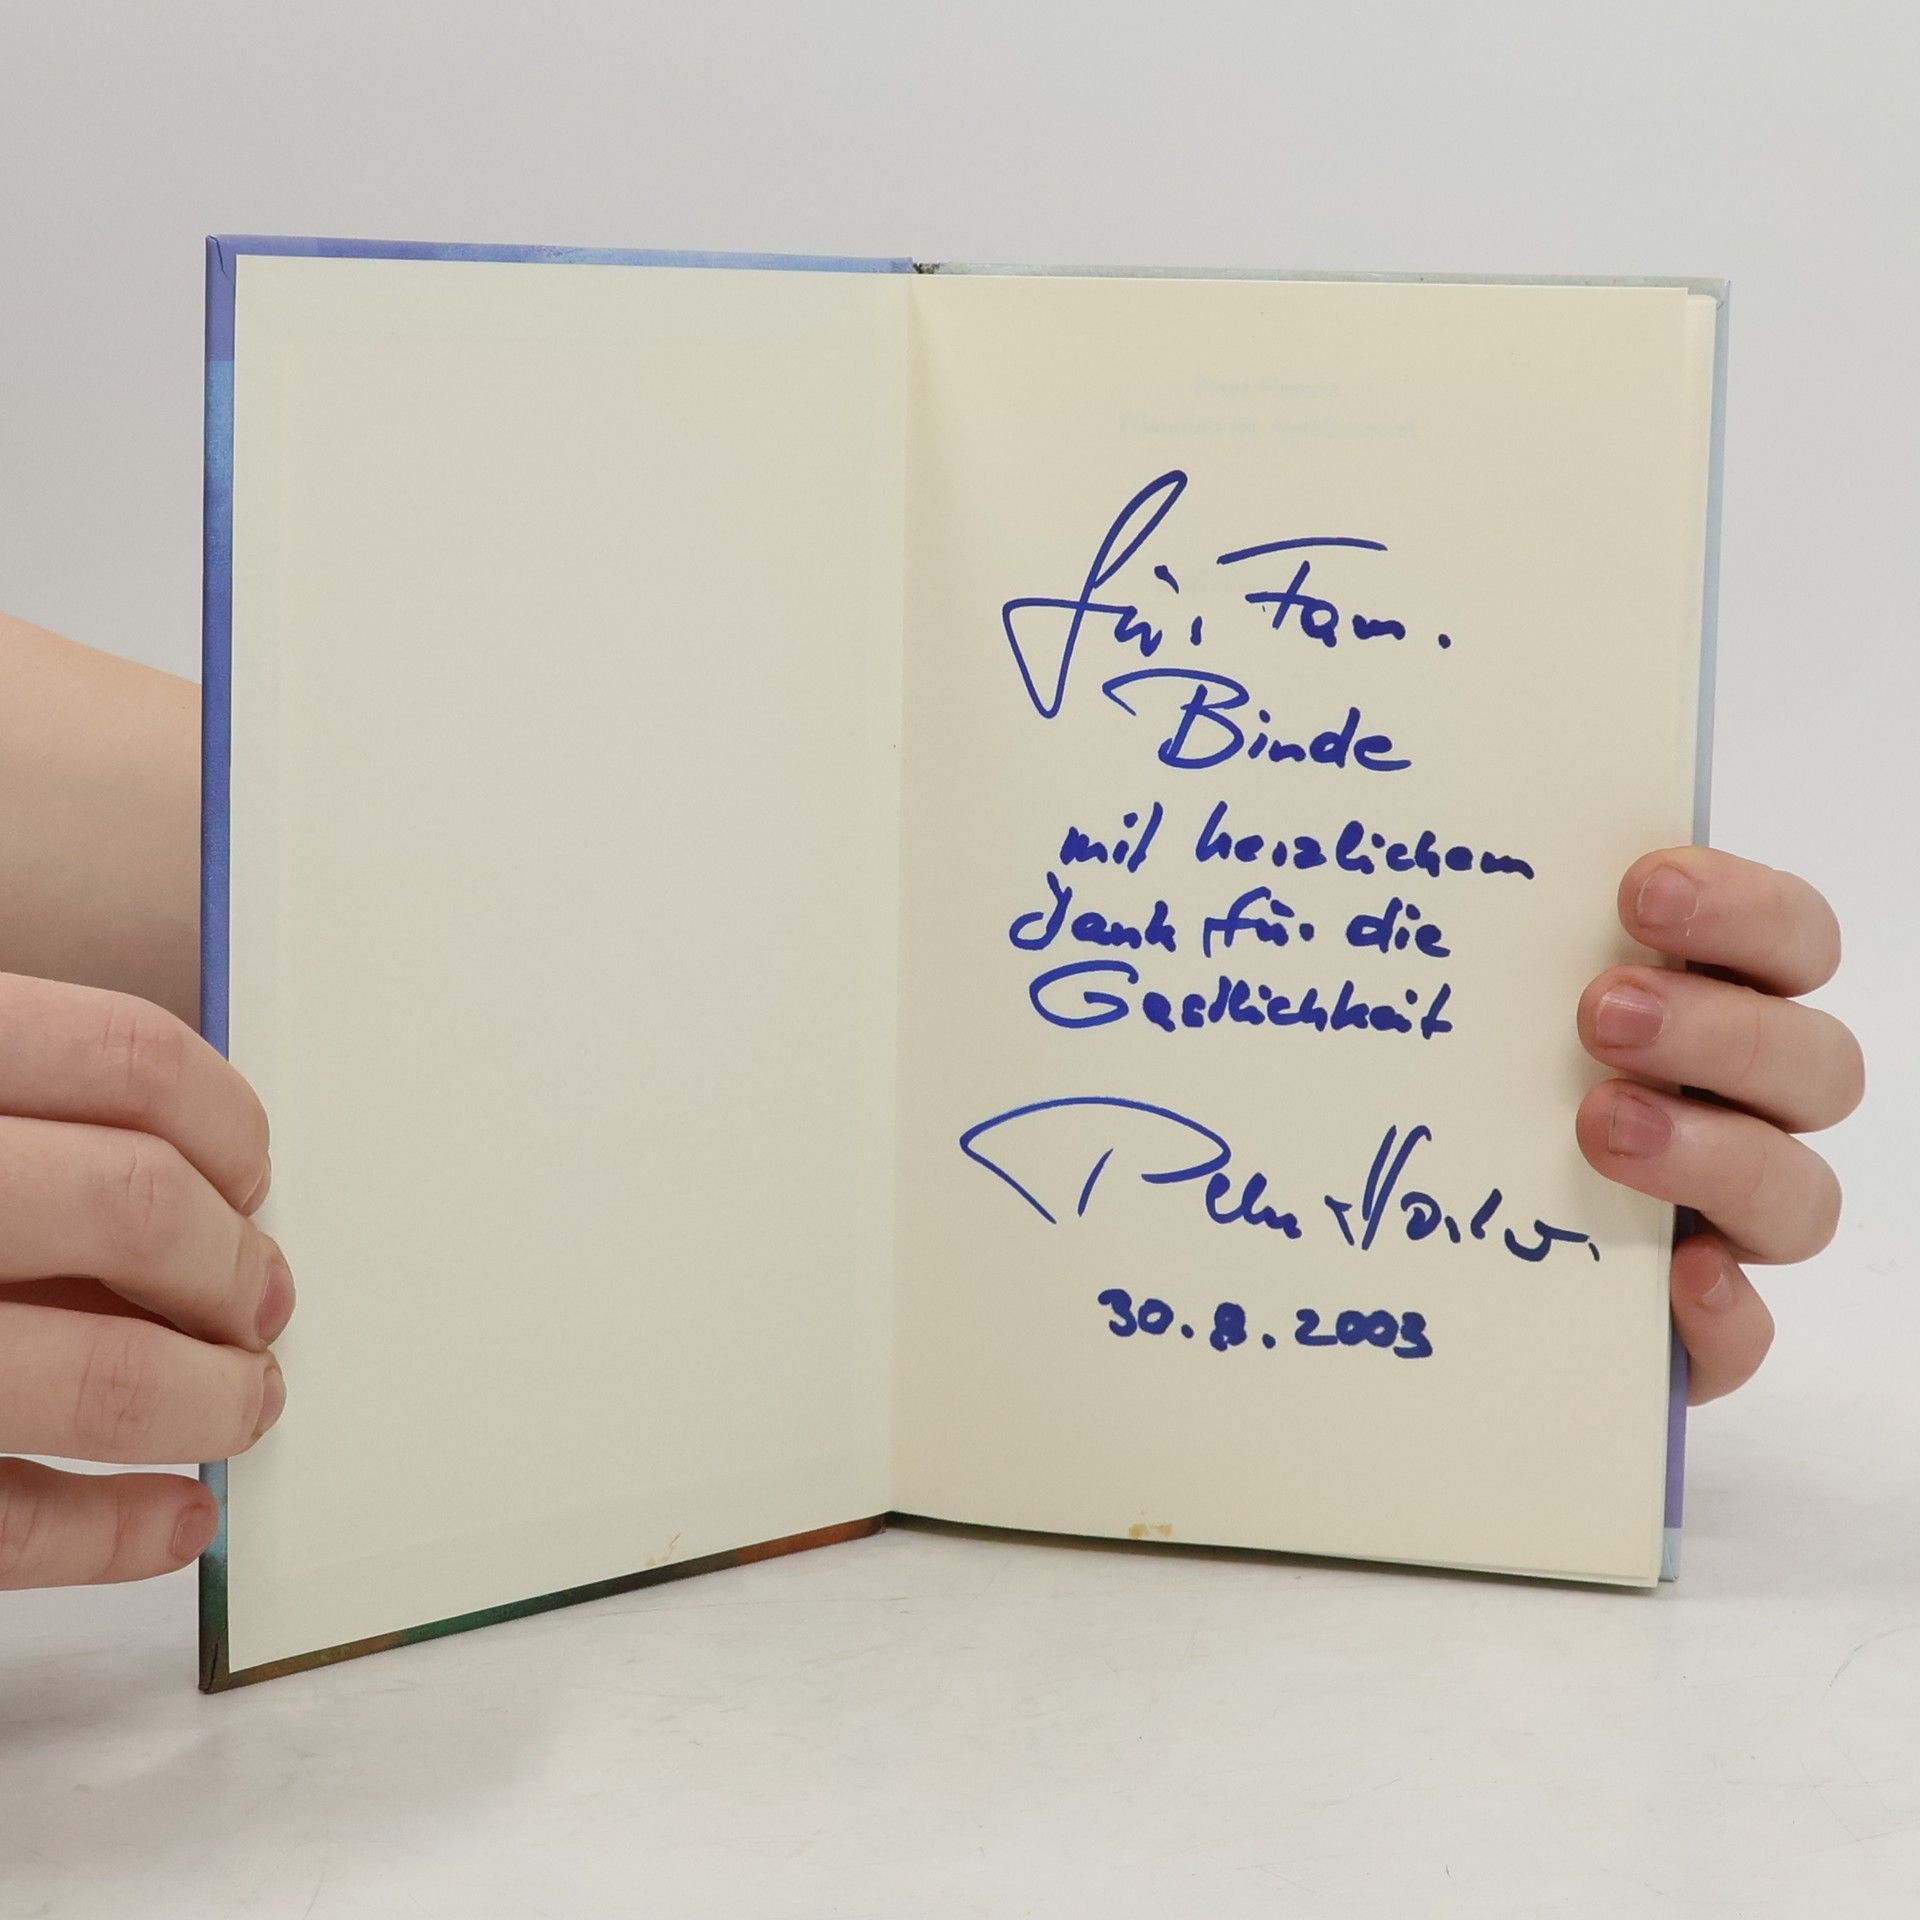 für Fam.
Binde
mit herzlichem
Dank für die
Gastlichkeit
Peter
30.8.2003